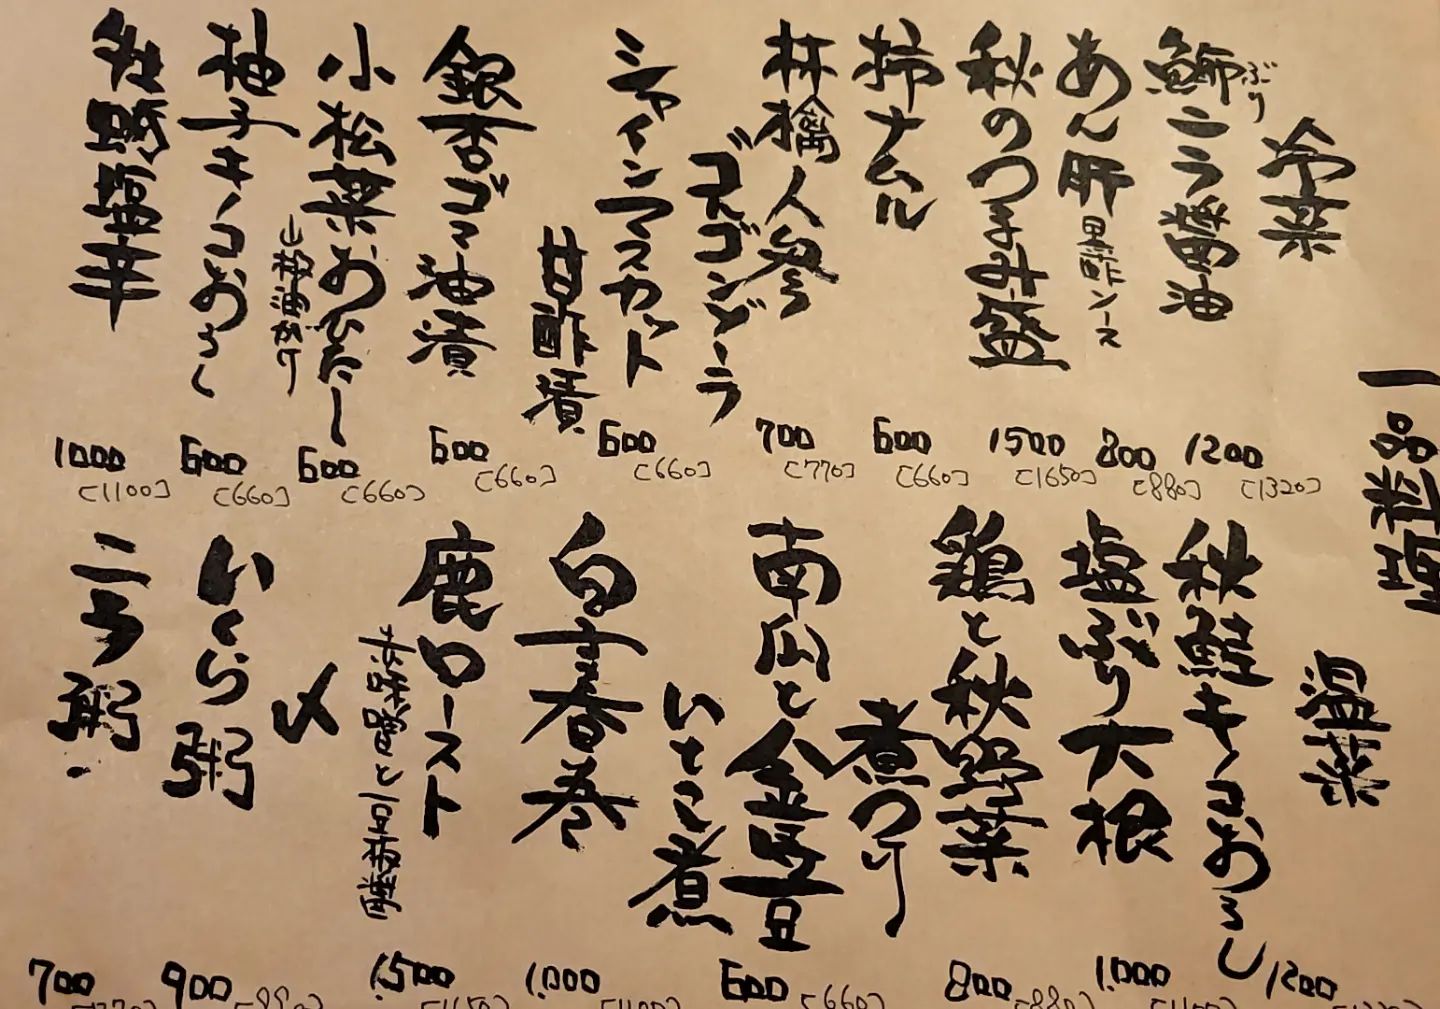 一品料理
冷菜
鰤ニラ醤油
ぶり
1200
[1320]
あん肝
黒酢ソース
800
[880]
秋のつまみ盛
1500
[1650]
柿ナムル
600
[660]
林檎人参
ゴルゴンゾーラ
700
[770]
シャインマスカット
甘酢漬
600
[660]
銀杏ゴマ油漬
600
[660]
小松菜おひたし
山椒油がけ
600
[660]
柚子キノコおろし
600
[660]
牡蠣塩辛
1000
[1100]
温菜
秋鮭キノコおろし
1200
[1320]
塩ぶり大根
1.000
[1100]
鶏と秋野菜
煮つけ
800
[880]
南瓜と金時豆
いとこ煮
600
[660]
白子春巻
1.000
[1100]
鹿ロースト
1.500
[1650]
〆
いくら粥
900
粥
700